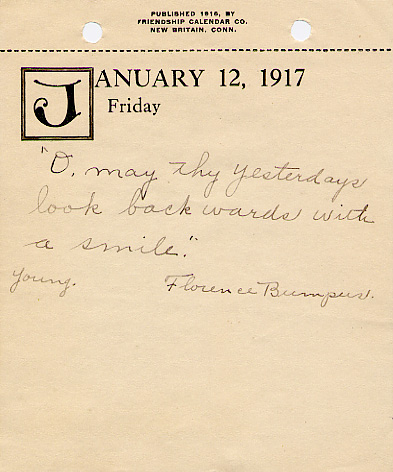 PUBLISHED 1916, BY
FRIENDSHIP CALENDAR CO.
NEW BRITAIN, CONN.
JANUARY 12, 1917
Friday
"O, may thy yesterdays
look backwards with
a smile."
Young. Florence Bumpus.